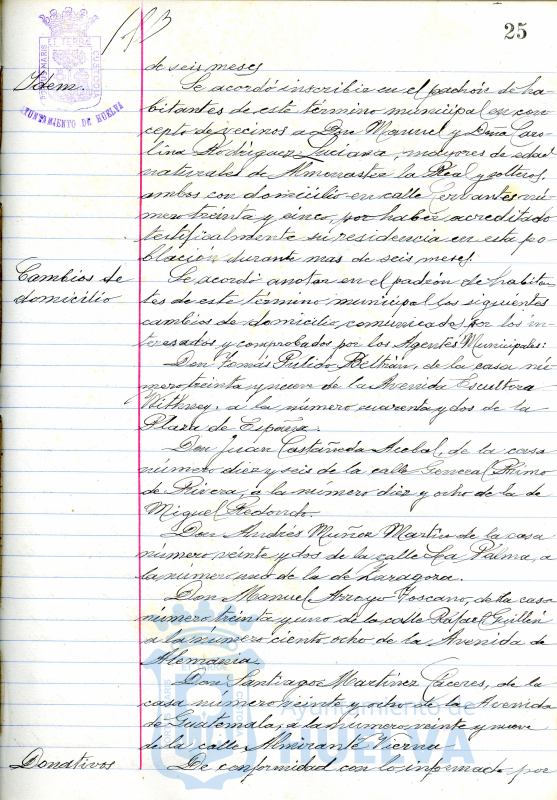 25
de seis meses
Idem.
Se acordó inscribir en el padrón de ha-
bitantes de este término municipal en con-
cepto de vecinos a Don Manuel y Dña Caro-
lina Rodríguez Luciana, mayores de edad
naturales de Almonaster la Real y solteros,
ambos con domicilio en calle Cervantes nú-
mero treinta y cinco, por haber acreditado
testificalmente su residencia en esta po-
blación durante mas de seis meses.
Cambios de
domicilio
Se acordó anotar en el padrón de habitan-
tes de este término municipal los siguientes
cambios de domicilio, comunicados por los in-
teresados y comprobados por los Agentes Municipales:
Don Tomás Pulido Beltrán, de la casa nú-
mero treinta y nueve de la Avenida Escultora
Withney, a la número cuarenta y dos de la
Plaza de España.
Don Juan Castañeda Acobal, de la casa
número diez y seis de la calle General Primo
de Rivera, a la número diez y ocho de la de
Miguel Redondo.
Don Andrés Muñoz Martín de la casa
número veinte y dos de la calle La Palma, a
la número uno de la de Zaragoza.
Don Manuel Arroyo Toscano, de la casa
número treinta y uno de la calle Rafael Guillén
a la número ciento ocho de la Avenida de
Alemania.
Don Santiago Martínez Cáceres, de la
casa número veinte y ocho de la Avenida
de Guatemala, a la número veinte y nueve
de la calle Almirante Vierna
Donativos
De conformidad con lo informado por
AYUNTAMIENTO DE HUELVA
Ayuntamiento de
HUELVA